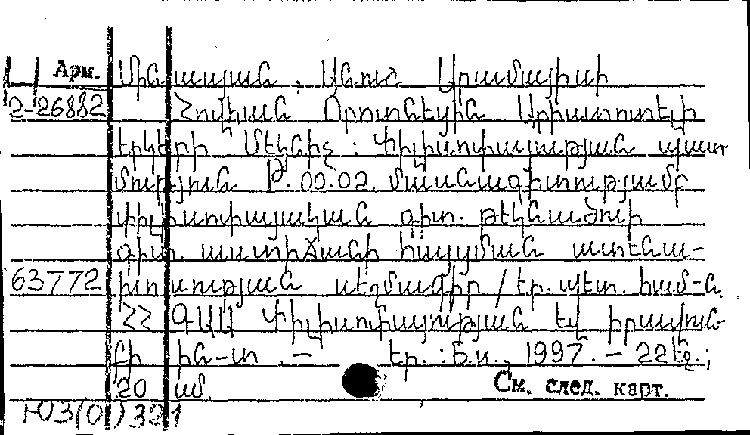 Арм. Մինասյան, Անուշ Արամայիսի
2-26882 Հովհան Որոտնեցին Արիստոտելի
երկերի մեկնիչ: Փիլիսոփայության պատ
մություն Թ.00.02. մասնագիտությամբ
փիլիսոփայական գիտ. թեկնածուի
գիտ. աստիճանի հայցման ատենա-
63772 խոսության սեղմագիր / Եր. պետ. համ-ն.
ՀՀ ԳԱԱ Փիլիսոփայության եվ իրավուն-
քի ին-տ. - Եր.: Բ.ռ., 1997. - 22 էջ.;
20 սմ.
См. след. карт.
Ю3(0)321